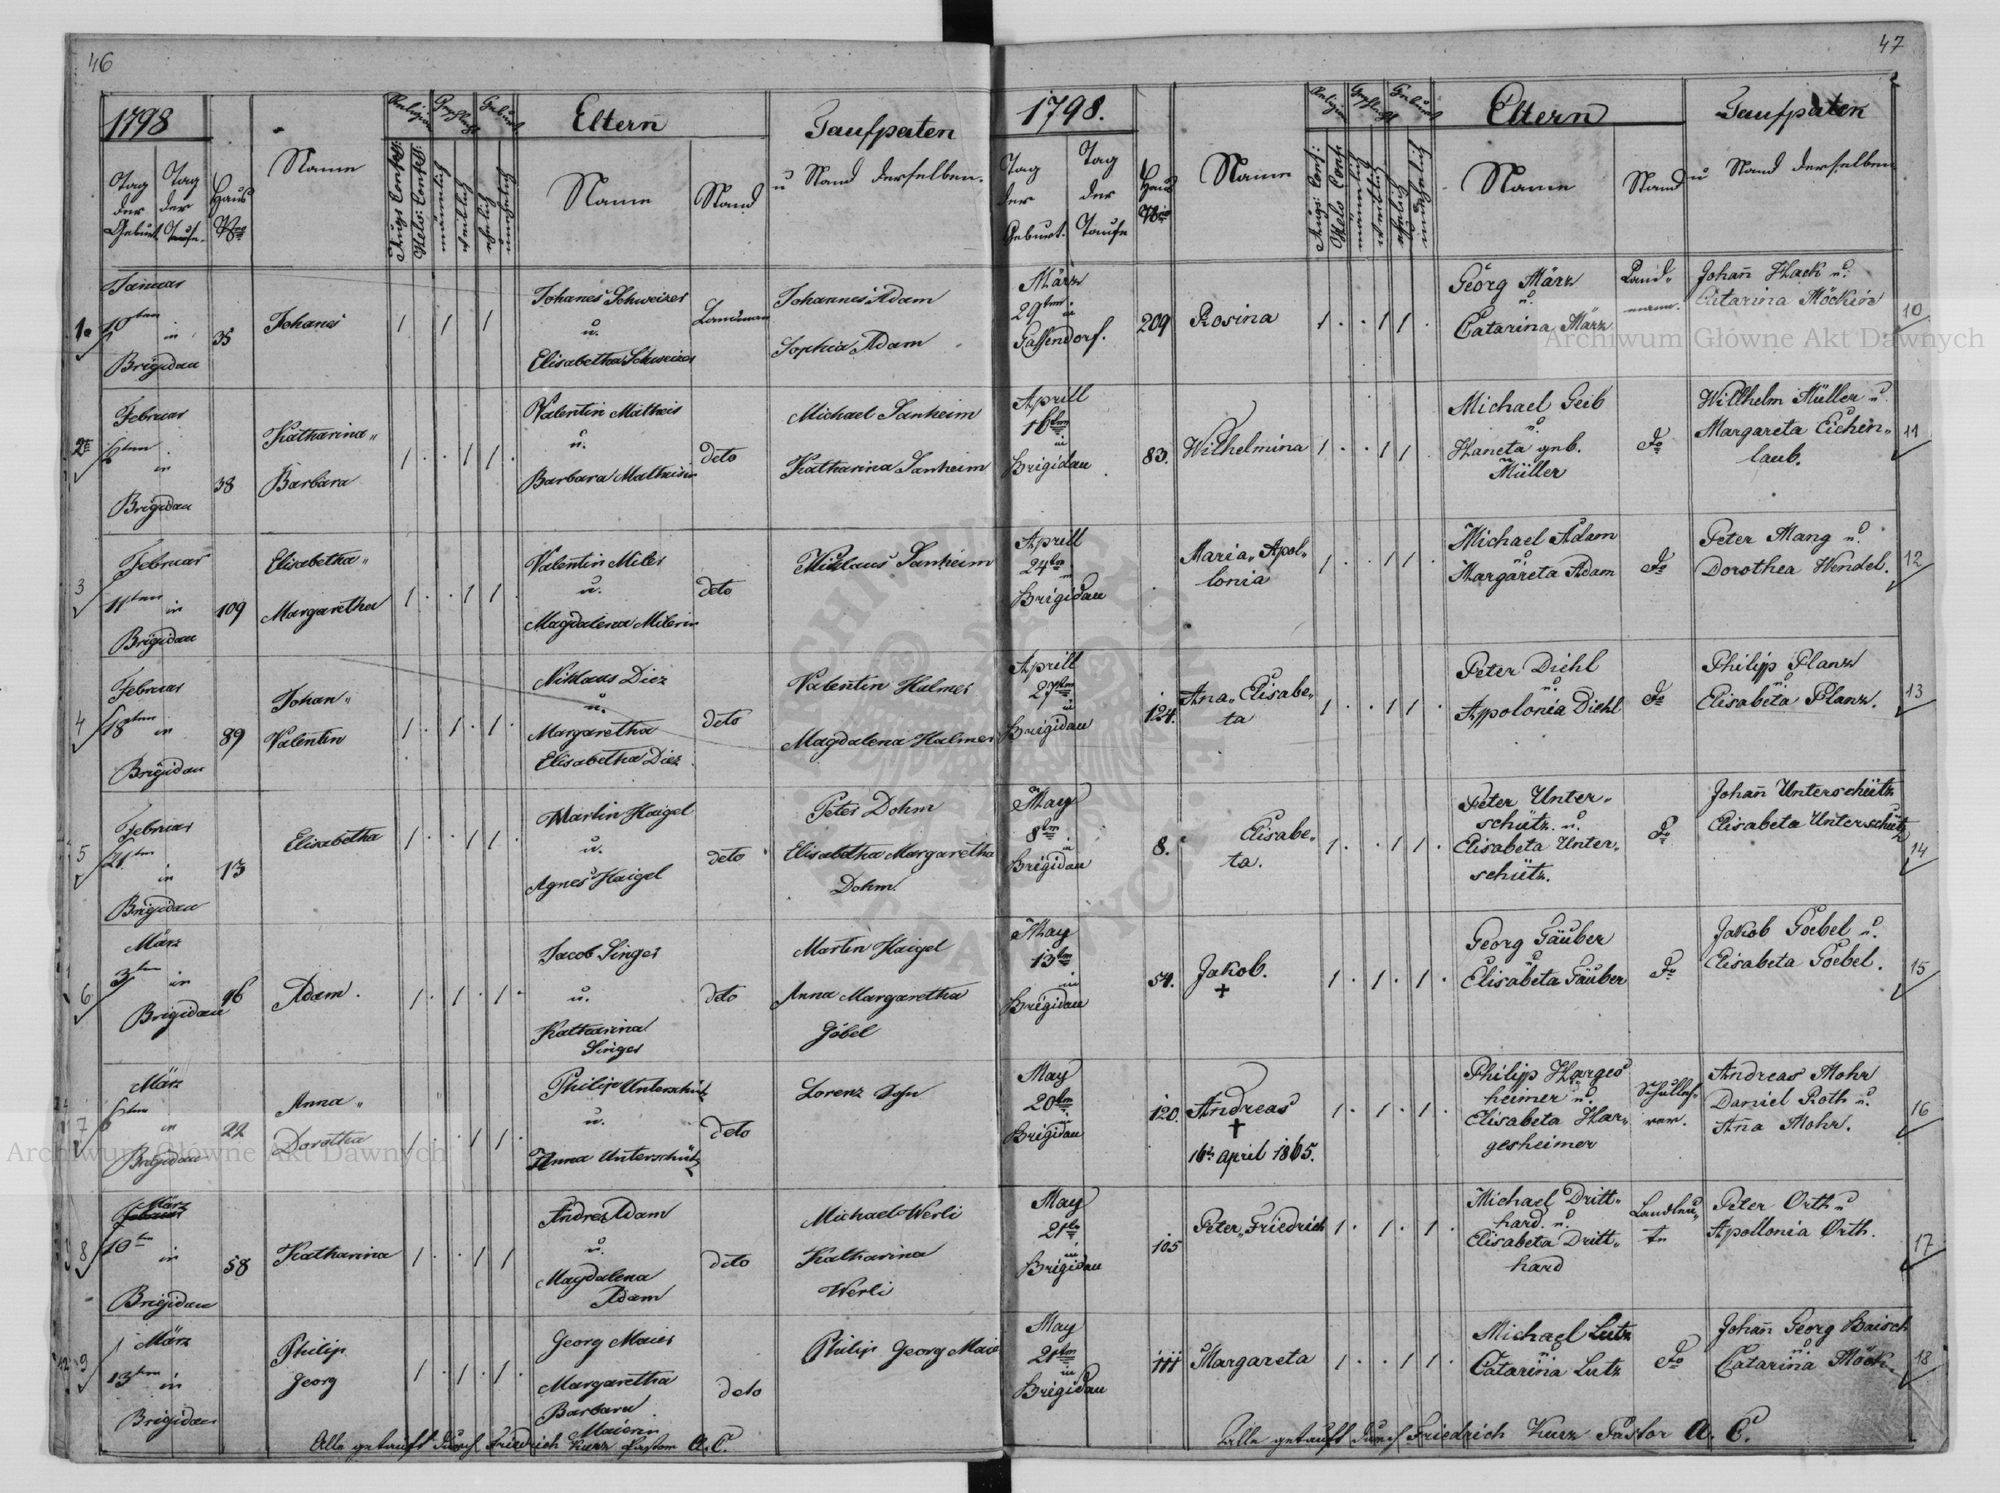 46
1798
Tag der Geburt
Tag der Taufe
Haus Nro
Name
Religion
Augs: Confess:
Helv: Confess:
Geschlecht
männlich
weiblich
Geburt
ehelich
unehelich
Eltern
Name
Stand
Taufpaten
u Stand derselben.
1.
Januar
10ten in
Brigidau
35
Johanes
Johanes Schweizer
u.
Elisabetha Schweizer
Landman
Johannes Adam
Sophia Adam
2
Februar
6ten in
Brigidau
38
Katharina„
Barbara
Valentin Matheis
u.
Barbara Matheisin
deto
Michael Janheim
Katharina Janheim
3
Februar
11ten in
Brigidau
109
Elisabetha„
Margaretha
Valentin Miler
u.
Magdalena Milerin
deto
Niklaus Janheim
4
Februar
18ten in
Brigidau
89
Johan„
Valentin
Niklaus Diez
u.
Margaretha
Elisabetha Diez
deto
Valentin Halmer
Magdalena Halmer
5
Februar
21ten
in
Brigidau
13
Elisabetha
Martin Haigel
u.
Agnes Haigel
deto
Peter Dohm
Elisabetha Margaretha
Dohm
6
März
3ten in
Brigidau
96
Adam.
Jacob Singer
u.
Katharina
Singer
deto
Martin Haigel
Anna Margaretha
Göbel
7
März
6ten in
Brigidau
22
Anna„
Dorotha
Philip Unterschütz
u.
Anna Unterschütz
deto
Lorenz
8
März
Februar
10ten in
Brigidau
58
Katharina
Andres Adam
u.
Magdalena
Adam
deto
Michael Werli
Katharina
Werli
9
März
13ten in
Brigidau
Philip
Georg
Georg Maier
Margaretha
Barbara
Maierin
deto
Philip Georg Maier
Alle getauft durch Friedrich Kurz Pastor A. C.
47
1798.
Tag der Geburt.
Tag der Taufe
Haus Nro
Name
Religion
Augs: Conf:
Helv Conf.
Geschlecht
männlich
weiblich
Geburt
ehelich
unehelich
Eltern
Name
Stand
Taufpaten
u Stand derselben
März
29ten in
Gassendorf.
209
Rosina
Georg März
u.
Catarina März
Land„
mann.
Johañ Hack u.
Catarina Möckin
10
Aprill
16ten
in
Brigidau
83.
Wilhelmina
Michael Geib
u.
Haneta geb.
Müller
do
Willhelm Müller u.
Margareta Eichen„
laub.
11
Aprill
24ten
in
Brigidau
Maria„ Apol„
lonia
Michael Adam
u
Margareta Adam
do
Peter Mang u.
Dorothea Wendel.
12
Aprill
27ten
in
Brigidau
124.
Ana„ Elisabe„
ta
Peter Diehl
u.
Apolonia Diehl
do
Philipp Planz
u.
Elisabeta Planz.
13
May
8ten
in
Brigidau
8.
Elisabe„
ta.
Peter Unter„
schütz. u.
Elisabeta Unter„
schütz.
do
Johañ Unterschütz
Elisabeta Unterschütz
14
May
13ten
in
Brigidau
54.
Jakob.
†
Georg Täuber
u
Elisabeta Täuber
do
Jakob Goebel u.
Elisabeta Goebel.
15
May
20ten
in
Brigidau
120.
Andreas
†
16ten April 1865.
Philipp Harges
heimer u.
Elisabeta Har„
gesheimer
Schulleh„
rer.
Andreas Mohr
Daniel Roth u.
Ana Mohr.
16
May
21ten
in
Brigidau
105
Peter„ Friedrich
Michael Dritt„
hard. u.
Elisabeta Dritt„
hard
Landleu„
te
Peter Orth u
Apollonia Orth.
17
May
21ten
in
Brigidau
111
Margareta
Michael Lutz
u.
Catarina Lutz
do
Johañ Georg Baisch
u.
Catarina Möck.
18
Alle getauft durch Friedrich Kurz Pastor A. C.
Archiwum Główne Akt Dawnych
Archiwum Główne Akt Dawnych